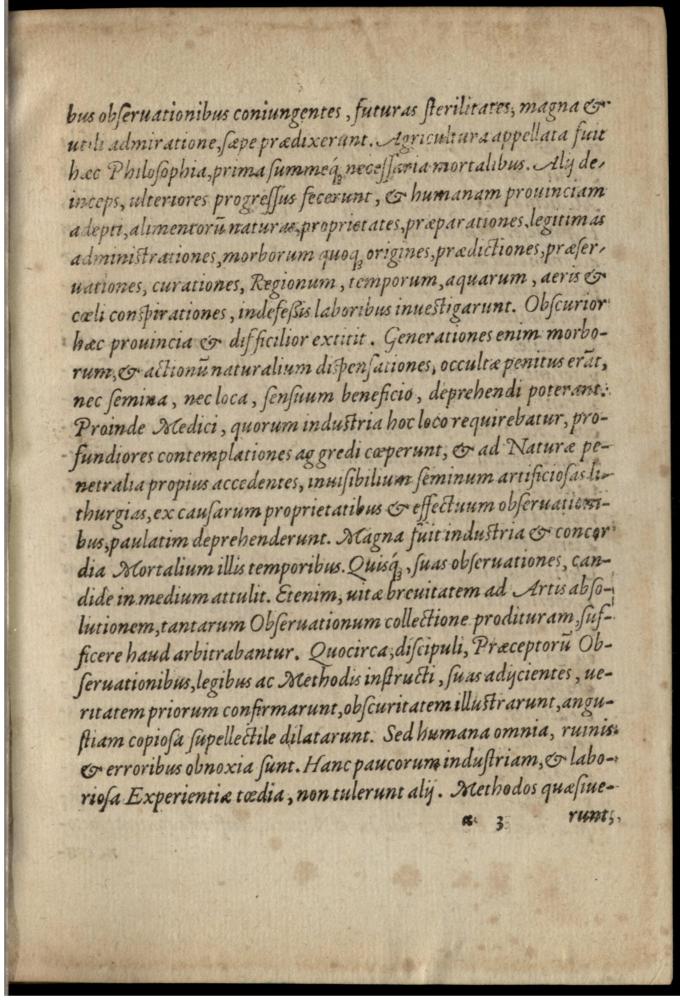 bus obſeruationibus coniungentes, futuras ſterilitates, magna &
utili admiratione, ſæpe prædixerunt. Agricultura appellata fuit
hæc Philoſophia, prima ſummeq́ꝫ neceſſaria mortalibus. Alij de-
inceps, ulteriores progreſſus fecerunt, & humanam prouinciam
adepti, alimentorū naturas, proprietates, præparationes, legitimas
adminiſtrationes, morborum quoqꝫ origines, prædictiones, præſer-
uationes, curationes, Regionum, temporum, aquarum, aeris &
cœli conſpirationes, indefeßis laboribus inueſtigarunt. Obſcurior
hæc prouincia & difficilior extitit. Generationes enim morbo-
rum, & actionū naturalium diſpenſationes, occultæ penitus erāt,
nec ſemina, nec loca, ſenſuum beneficio, deprehendi poterant.
Proinde Medici, quorum induſtria hoc loco requirebatur, pro-
fundiores contemplationes aggredi cœperunt, & ad Naturæ pe-
netralia propius accedentes, inuiſibilium ſeminum artificioſas li-
thurgias, ex cauſarum proprietatibus & effectuum obſeruationi-
bus, paulatim deprehenderunt. Magna fuit induſtria & concor
dia Mortalium illis temporibus. Quisq́ꝫ, ſuas obſeruationes, can-
dide in medium attulit. Etenim, uitæ breuitatem ad Artis abſo-
lutionem, tantarum Obſeruationum collectione prodituram, ſuf-
ficere haud arbitrabantur. Quocirca, diſcipuli, Præceptorū Ob-
ſeruationibus, legibus ac Methodis inſtructi, ſuas adijcientes, ue-
ritatem priorum confirmarunt, obſcuritatem illuſtrarunt, angu-
ſtiam copioſa ſupellectile dilatarunt. Sed humana omnia, ruinis
& erroribus obnoxia ſunt. Hanc paucorum induſtriam, & labo-
rioſa Experientiæ tœdia, non tulerunt alij. Methodos quæſiue-
a 3 runt,